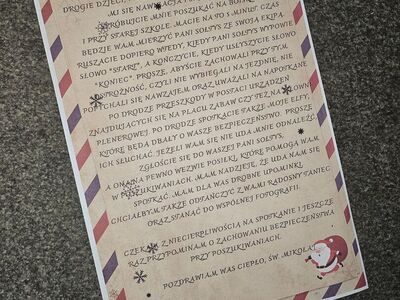 DROGIE DZIECI,
MI SIĘ NAWIGACJA
SPRÓBUJCIE MNIE POSZUKAĆ NA
I PRZY STAREJ SZKOLE. MACIE NA TO 5 MINUT. CZAS
BĘDZIE WAM MIERZYĆ PANI SOŁTYS ZE SWOJĄ EKIPĄ.
RUSZACIE DOPIERO WTEDY, KIEDY PANI SOŁTYS WYPOWIE
SŁOWO "START", A KOŃCZYCIE, KIEDY USŁYSZYCIE SŁOWO
"KONIEC". PROSZĘ, ABYŚCIE ZACHOWALI PRZY TYM
OSTROŻNOŚĆ, CZYLI NIE WYBIEGALI NA JEZDNIĘ, NIE
POPYCHALI SIĘ NAWZAJEM ORAZ UWAŻALI NA NAPOTKANE
PO DRODZE PRZESZKODY W POSTACI URZĄDZEŃ
ZNAJDUJĄCYCH SIĘ NA PLACU ZABAW CZY TEŻ NA SIŁOWNI
PLENEROWEJ. PO DRODZE SPOTKACIE TAKŻE MOJE ELFY,
KTÓRE BĘDĄ DBAŁY O WASZE BEZPIECZEŃSTWO. PROSZĘ
ICH SŁUCHAĆ. JEŻELI WAM SIĘ NIE UDA MNIE ODNALEŹĆ,
ZGŁOŚCIE SIĘ DO WASZEJ PANI SOŁTYS,
A ONA NA PEWNO WEZWIE POSIŁKI, KTÓRE POMOGĄ WAM
W POSZUKIWANIACH. MAM NADZIEJĘ, ŻE UDA NAM SIĘ
SPOTKAĆ. MAM DLA WAS DROBNE UPOMINKI,
CHCIAŁBYM TAKŻE ODTAŃCZYĆ Z WAMI RADOSNY TANIEC
ORAZ STANĄĆ DO WSPÓLNEJ FOTOGRAFII.
CZEKAM Z NIECIERPLIWOŚCIĄ NA SPOTKANIE I JESZCZE
RAZ PRZYPOMINAM O ZACHOWANIU BEZPIECZEŃSTWA
PRZY POSZUKIWANIACH.
POZDRAWIAM WAS CIEPŁO, ŚW. MIKOŁAJ